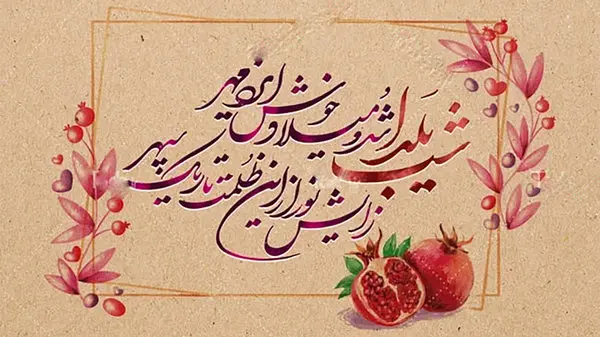 شب یلدا شد و میلاد خوش ایزد مهر
زایش نور از این ظلمت تاریک سپهر